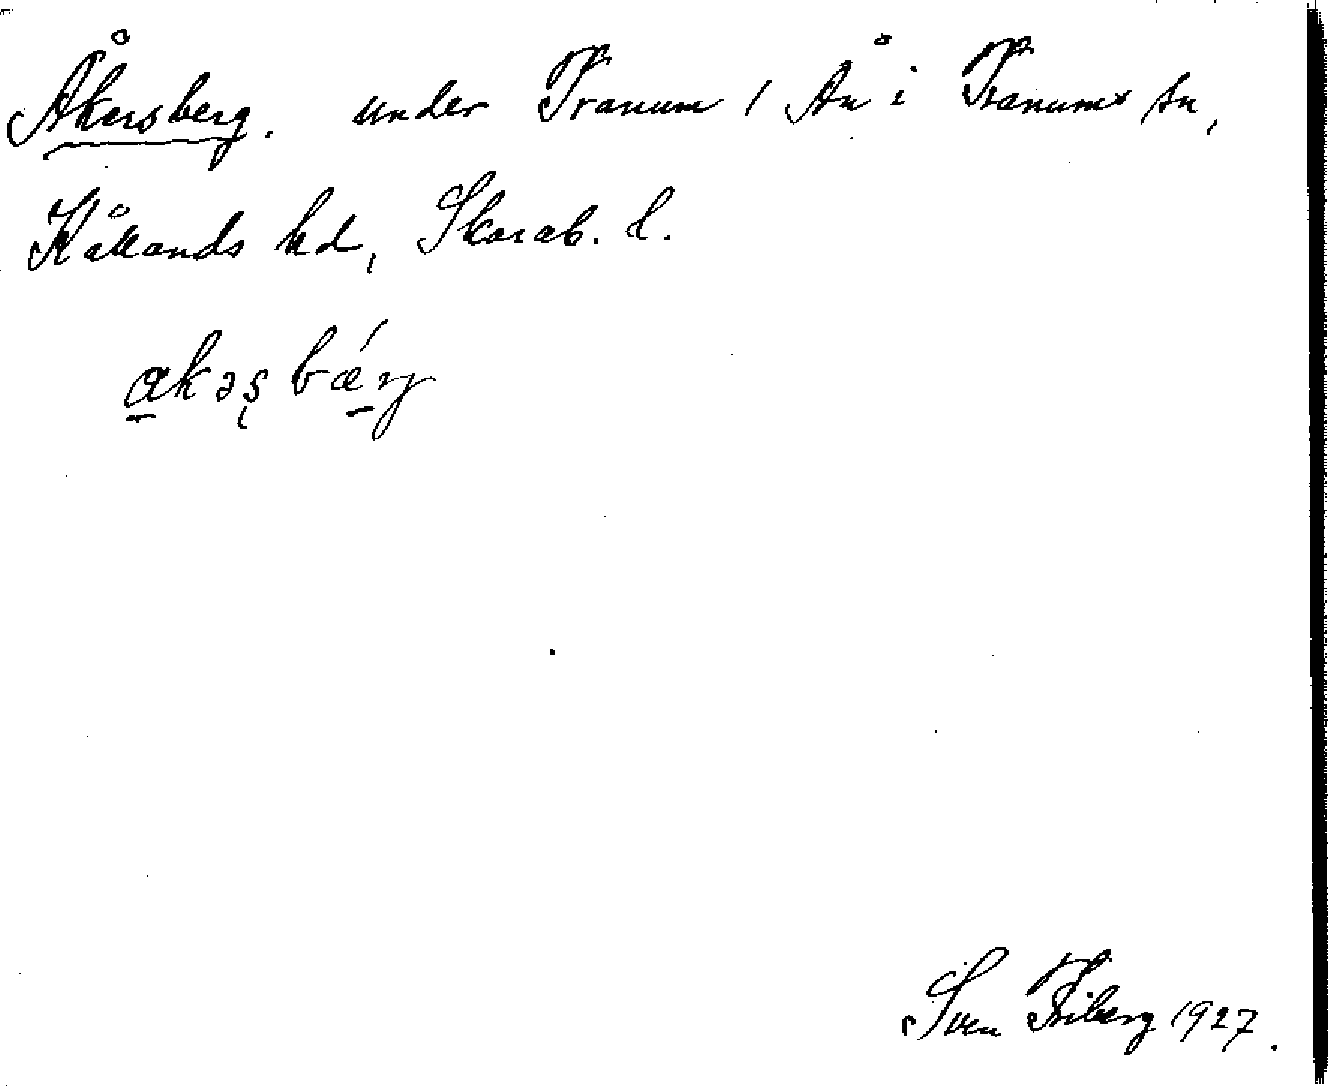 Åkersberg. under Tranum 1 Ån i Tranums sn,
Kållands hd, Skarab. l.
akəs bǽrj
Sven Friberg 1927.